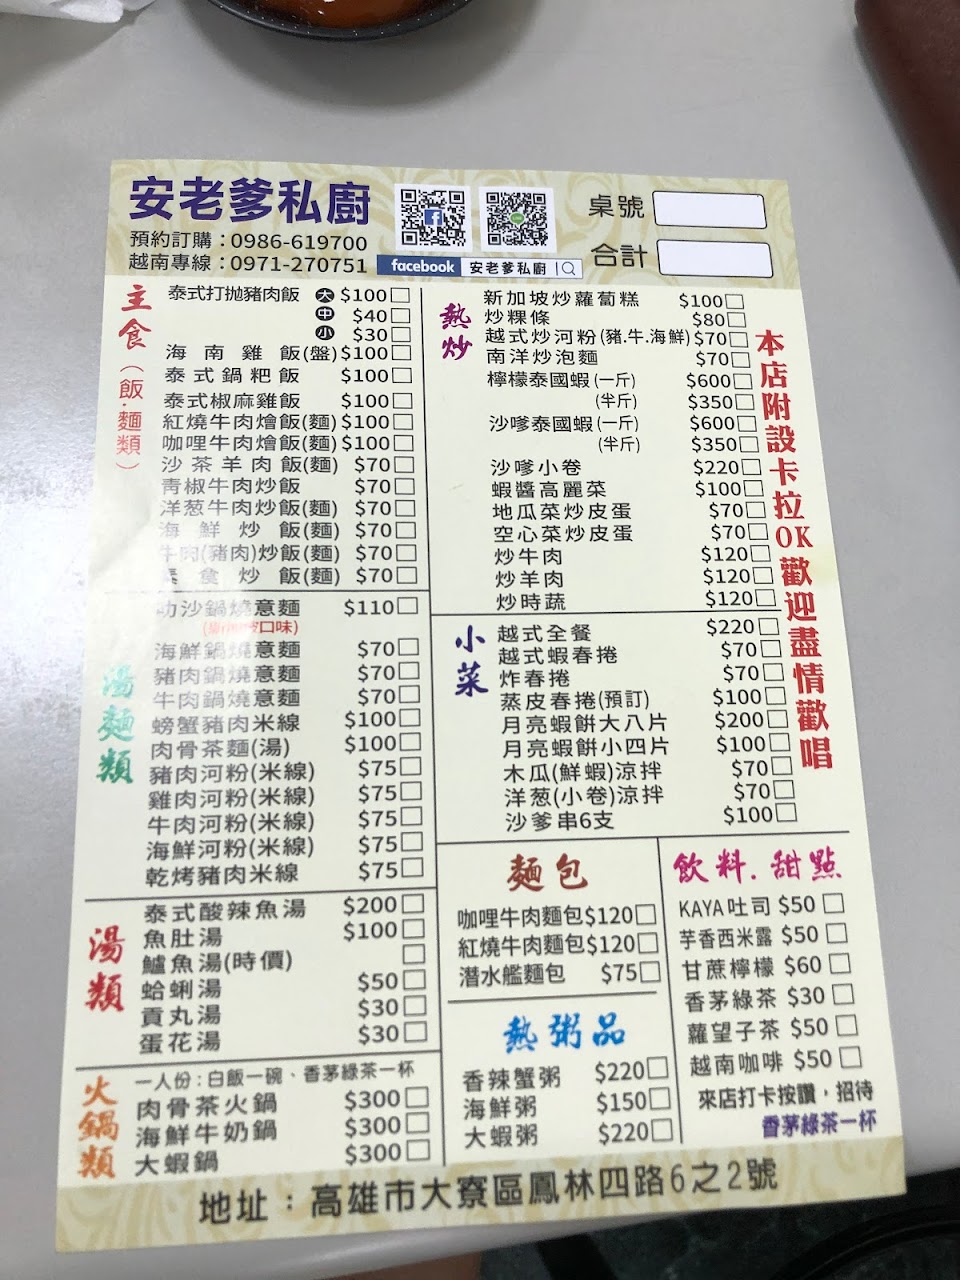 安老爹私廚
預約訂購：0986-619700
越南專線：0971-270751
facebook 安老爹私廚
桌號
合計
主食（飯.麵類）
泰式打拋豬肉飯 大 $100
中 $40
小 $30
海南雞飯(盤) $100
泰式鍋粑飯 $100
泰式椒麻雞飯 $100
紅燒牛肉燴飯(麵) $100
咖哩牛肉燴飯(麵) $100
沙茶羊肉飯(麵) $70
青椒牛肉炒飯 $70
洋葱牛肉炒飯(麵) $70
海鮮炒飯(麵) $70
牛肉(豬肉)炒飯(麵) $70
素食炒飯(麵) $70
湯麵類
叻沙鍋燒意麵 $110
口味)
海鮮鍋燒意麵 $70
豬肉鍋燒意麵 $70
牛肉鍋燒意麵 $70
螃蟹豬肉米線 $100
肉骨茶麵(湯) $100
豬肉河粉(米線) $75
雞肉河粉(米線) $75
牛肉河粉(米線) $75
海鮮河粉(米線) $75
乾烤豬肉米線 $75
湯類
泰式酸辣魚湯 $200
魚肚湯 $100
鱸魚湯(時價)
蛤蜊湯 $50
貢丸湯 $30
蛋花湯 $30
火鍋類
一人份：白飯一碗、香茅綠茶一杯
肉骨茶火鍋 $300
海鮮牛奶鍋 $300
大蝦鍋 $300
熱炒
新加坡炒蘿蔔糕 $100
炒粿條 $80
越式炒河粉(豬.牛.海鮮) $70
南洋炒泡麵 $70
檸檬泰國蝦(一斤) $600
(半斤) $350
沙嗲泰國蝦(一斤) $600
(半斤) $350
沙嗲小卷 $220
蝦醬高麗菜 $100
地瓜菜炒皮蛋 $70
空心菜炒皮蛋 $70
炒牛肉 $120
炒羊肉 $120
炒時蔬 $120
小菜
越式全餐 $220
越式蝦春捲 $70
炸春捲 $70
蒸皮春捲(預訂) $100
月亮蝦餅大八片 $200
月亮蝦餅小四片 $100
木瓜(鮮蝦)涼拌 $70
洋葱(小卷)涼拌 $70
沙爹串6支 $100
本店附設卡拉OK歡迎盡情歡唱
麵包
咖哩牛肉麵包 $120
紅燒牛肉麵包 $120
潛水艦麵包 $75
熱粥品
香辣蟹粥 $220
海鮮粥 $150
大蝦粥 $220
飲料.甜點
KAYA吐司 $50
芋香西米露 $50
甘蔗檸檬 $60
香茅綠茶 $30
蘿望子茶 $50
越南咖啡 $50
來店打卡按讚，招待
香茅綠茶一杯
地址：高雄市大寮區鳳林四路6之2號